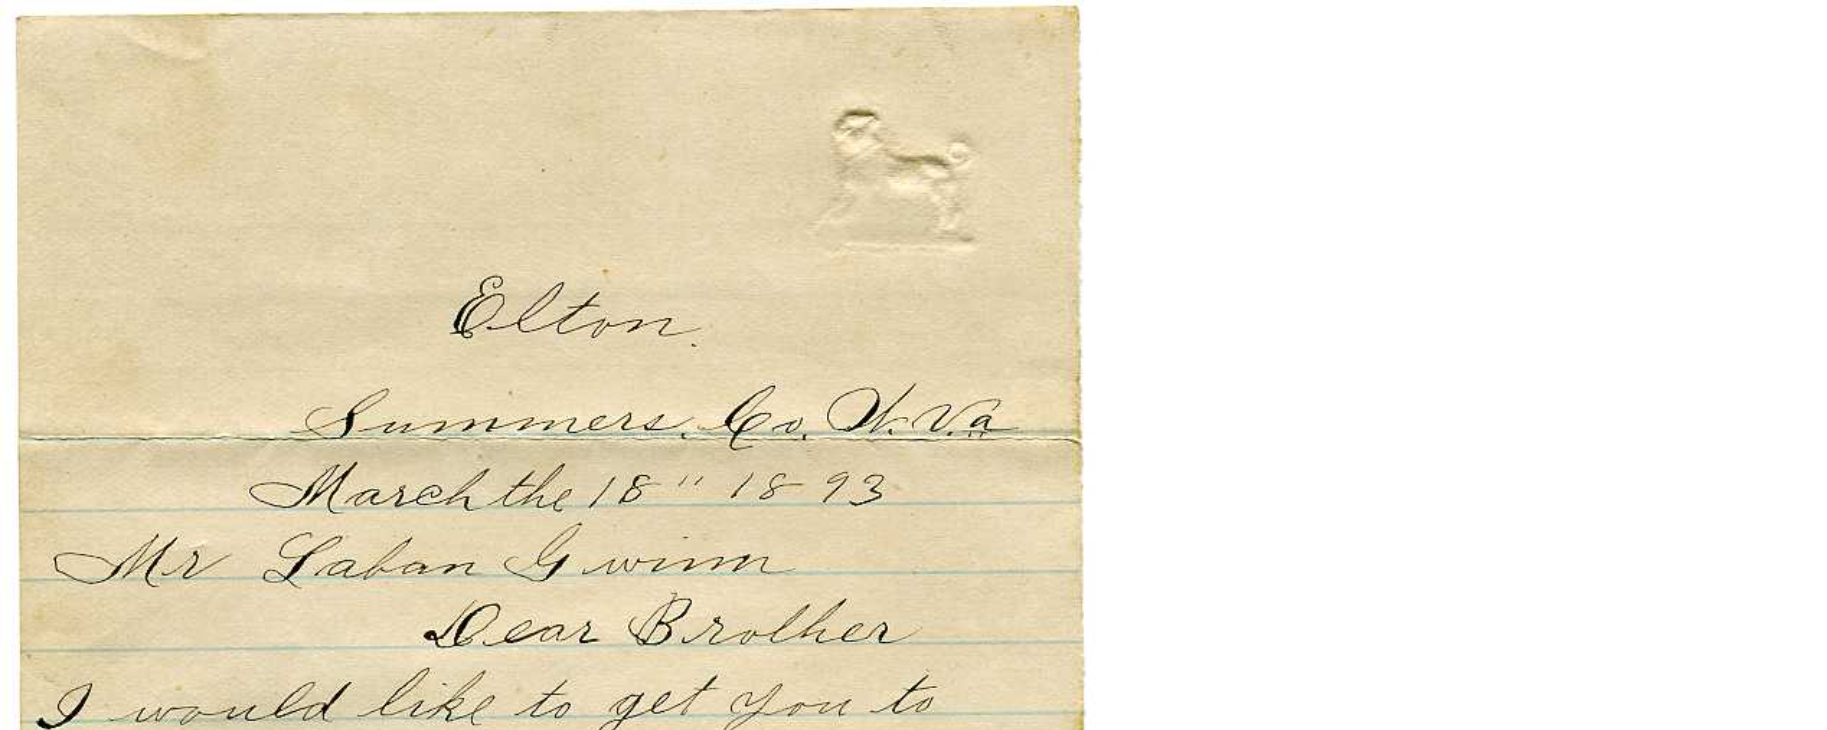 Elton.
Summers. Co. W. Va
March the 18" 1893
Mr Laban Gwinn
Dear Brother
I would like to get you to